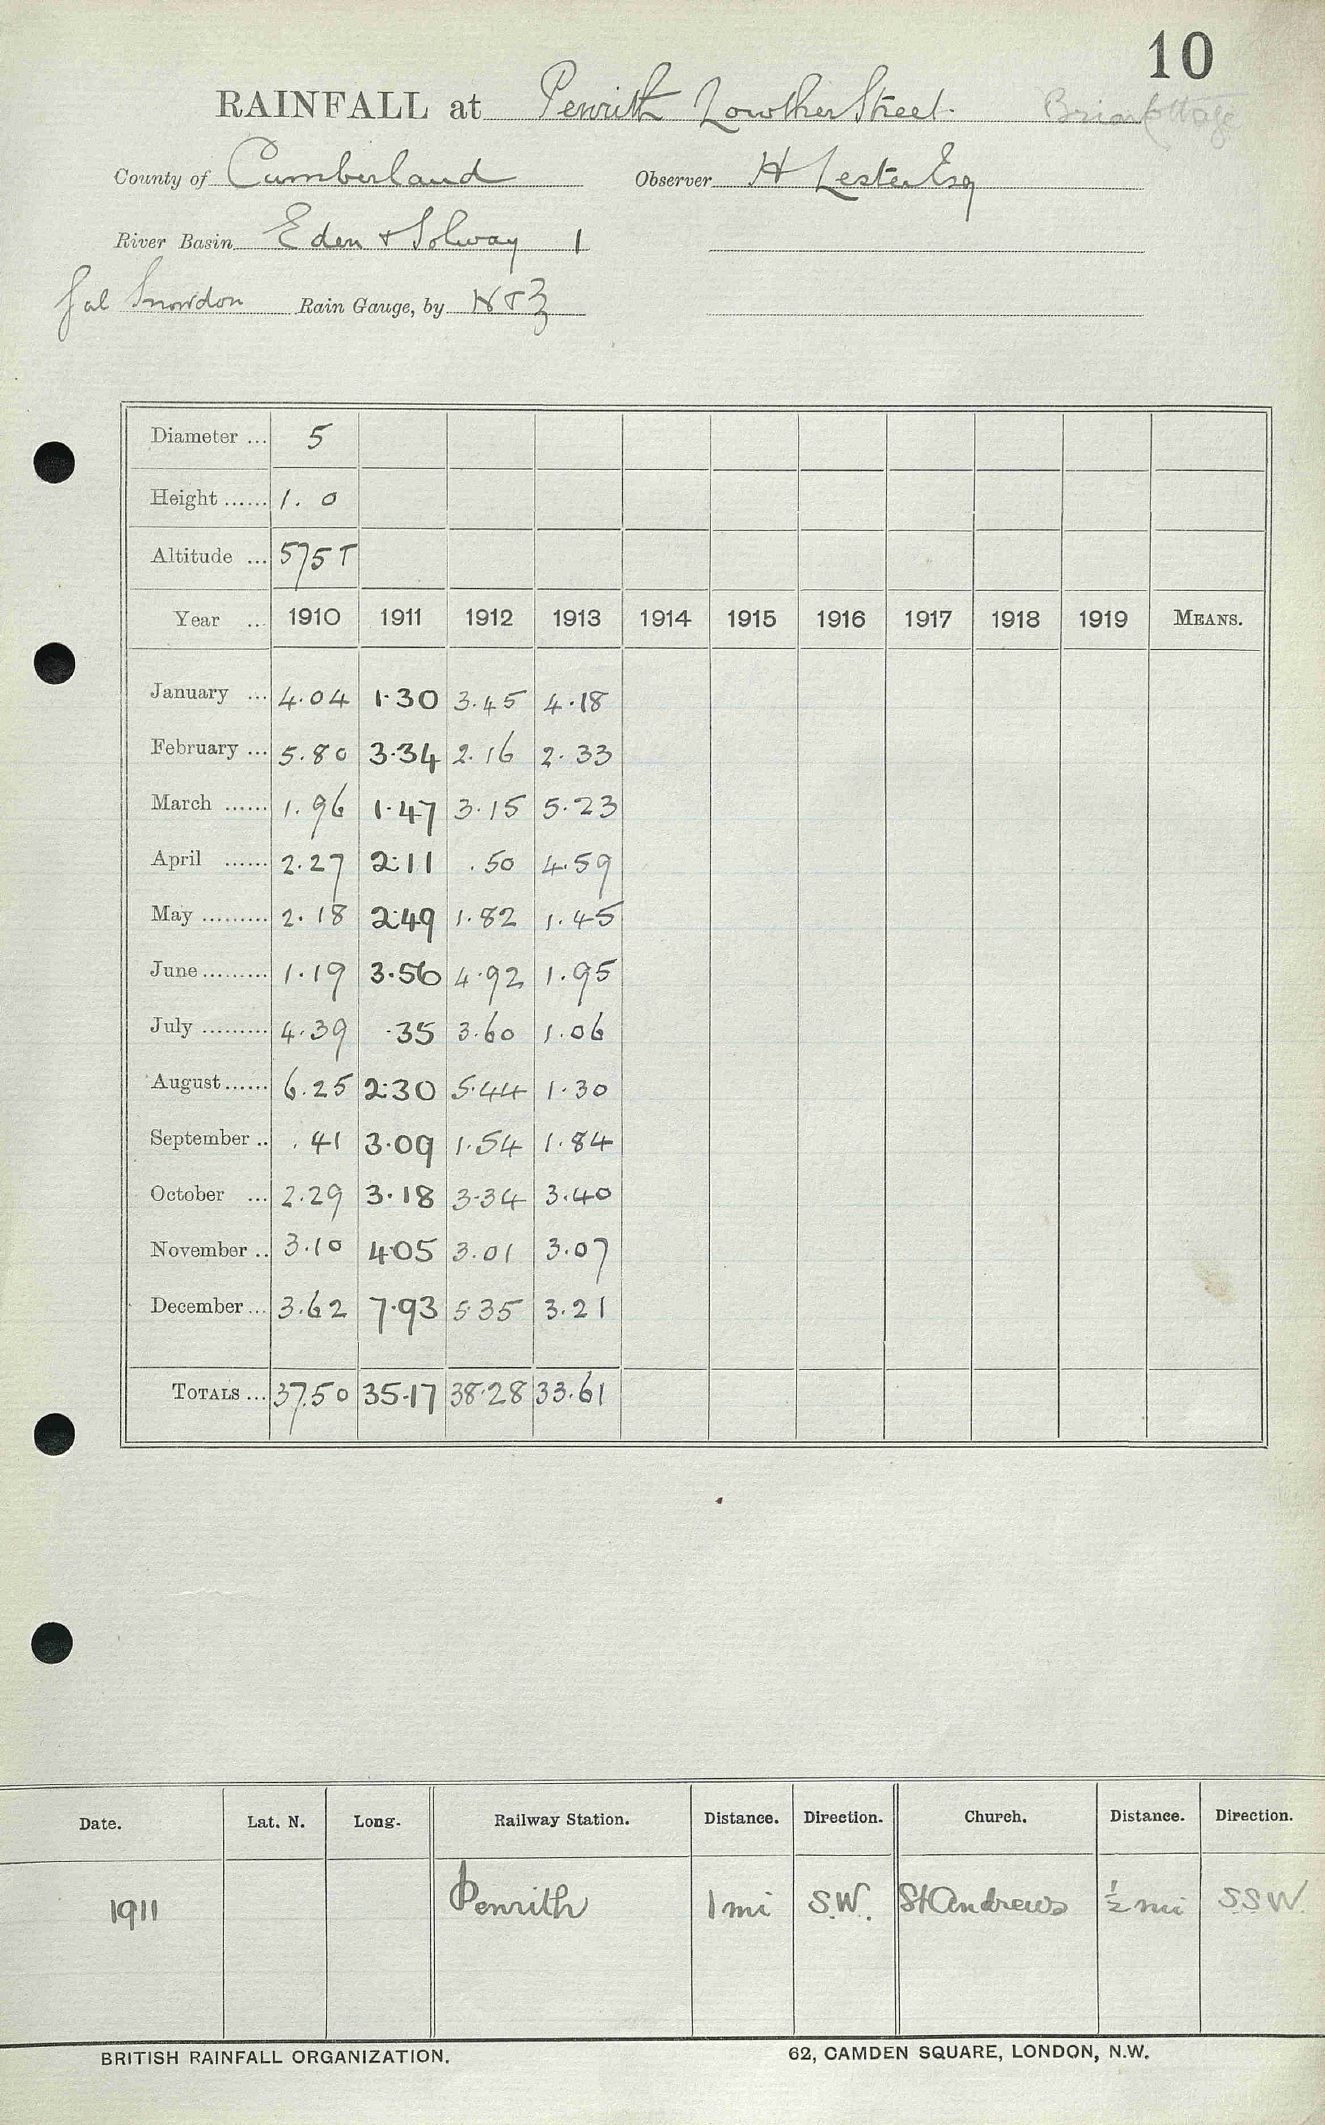 10
RAINFALL at Penrith Lowther Street. Briar Cottage
County of Cumberland Observer H Lester Esq
River Basin Eden & Solway 1
Gal Snowdon Rain Gauge, by N & Z
Diameter ... 5
Height ...... 1. 0
Altitude ... 575 T
Year ... 1910 1911 1912 1913 1914 1915 1916 1917 1918 1919 MEANS.
January ... 4.04 1.30 3.45 4.18
February ... 5.80 3.34 2.16 2.33
March ...... 1.96 1.47 3.15 5.23
April ...... 2.27 2.11 .50 4.59
May ......... 2.18 2.49 1.82 1.45
June ......... 1.19 3.56 4.92 1.95
July ......... 4.39 .35 3.60 1.06
August ...... 6.25 2.30 5.44 1.30
September .. .41 3.09 1.54 1.84
October ... 2.29 3.18 3.34 3.40
November .. 3.10 4.05 3.01 3.07
December ... 3.62 7.93 5.35 3.21
TOTALS ... 37.50 35.17 38.28 33.61
Date. Lat. N. Long. Railway Station. Distance. Direction. Church. Distance. Direction.
1911 Penrith 1 mi S.W. St Andrews ½ mi S.S.W.
BRITISH RAINFALL ORGANIZATION. 62, CAMDEN SQUARE, LONDON, N.W.